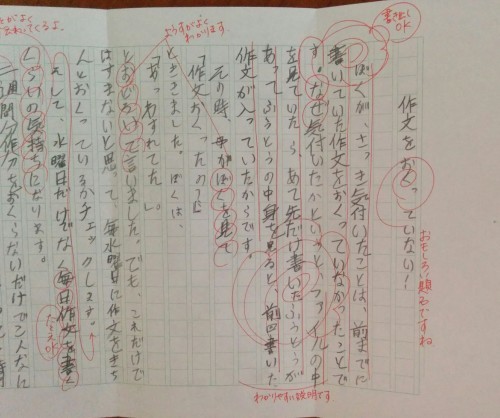 作文をおくっていない!
書き出しOK
おもしろい題名ですね
ぼくが、さっき気付いたことは、前までに
書いていた作文をおくっていなかったことで
す。なぜ気付いたかというと、ファイルの中
を見ていたら、あて先だけ書いたふうとうが
あってふうとうの中身を見ると、前回書いた
作文が入っていたからです。
わかりやすい説明です。
その時、母がぼくを見て
「作文おくったの」
とききました。ぼくは、
ようすがよくわかります
「あっわすれてた。」
とおどろいて言いました。でも、これだけで
はすまないと思って、毎水曜日に作文をきち
んとおくっているかチェックします。
そして、水曜日だけでなく毎日作文を書く
たとえOK
くらいの気持ちになります。
一週間作文をおくらないだけでこんなに